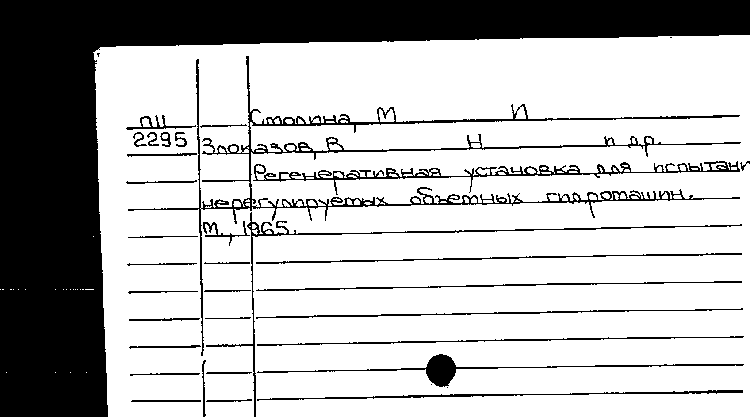 ПИ Столина, М И
2295 Злоказов, В Н и др.
Регенеративная установка для испытани
нерегулируемых объемных гидромашин.
М., 1965.